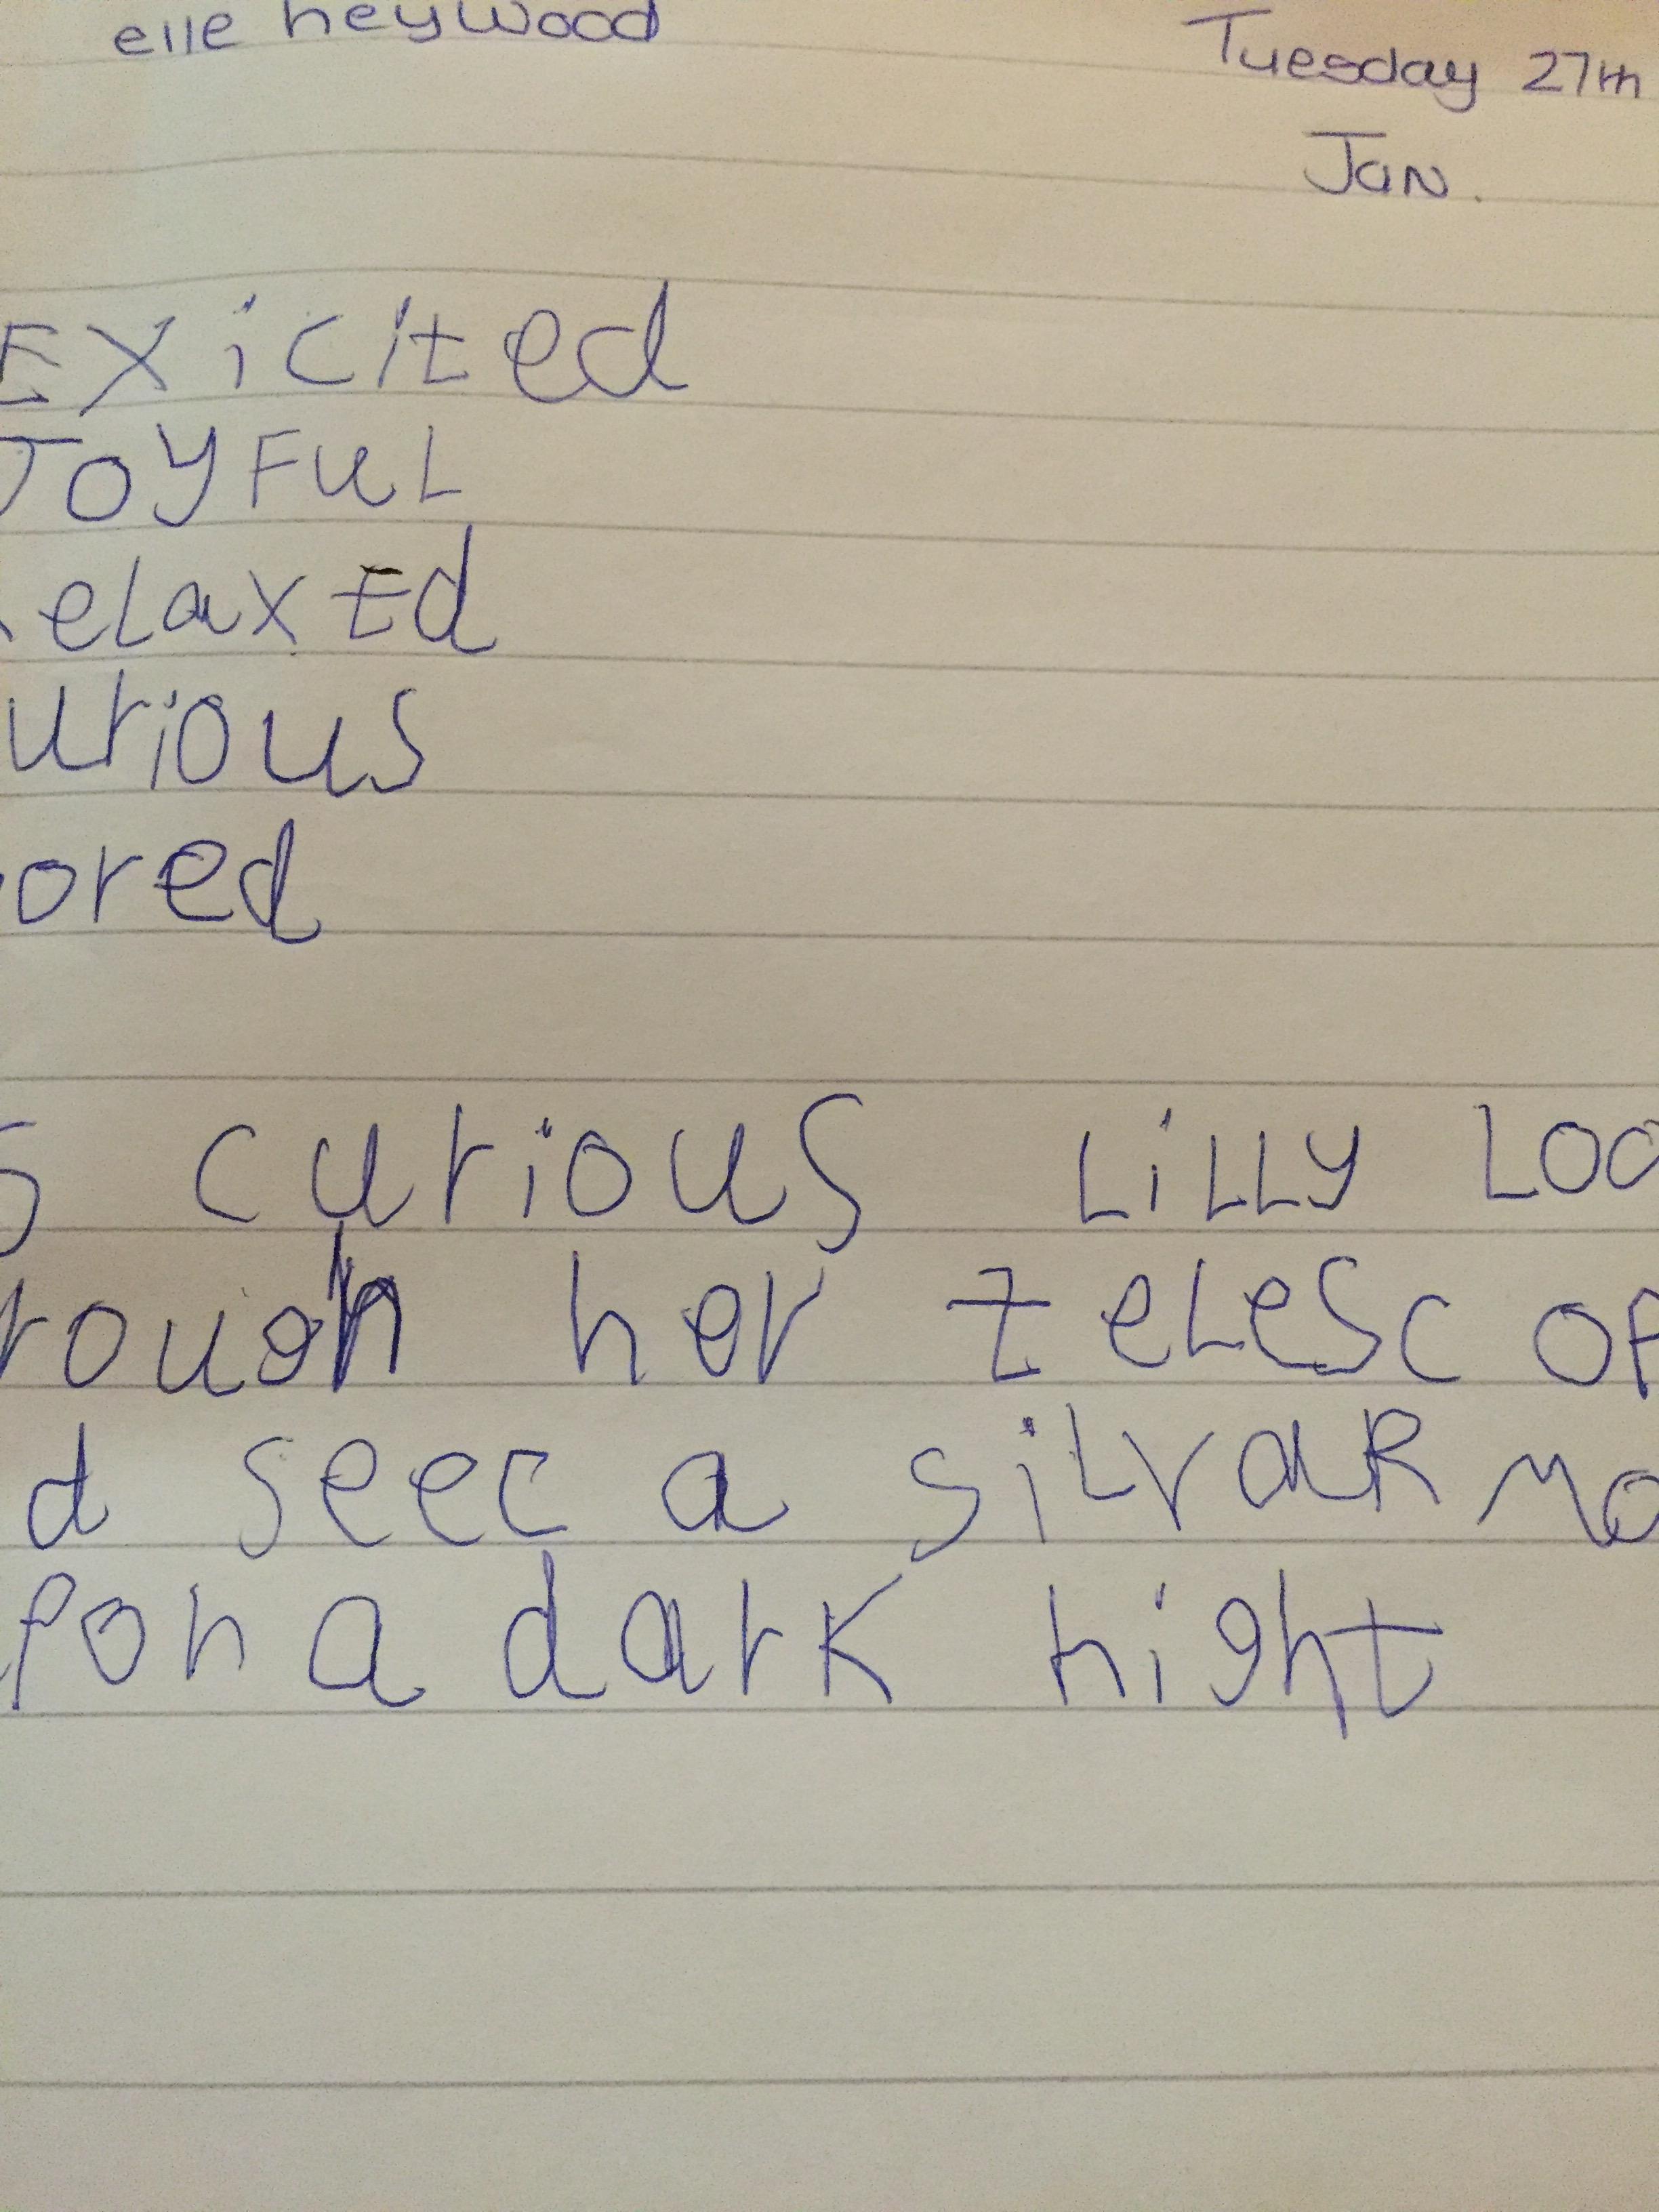 elle heywood
Tuesday 27th
Jan.
Exicited
JoyFuL
elaxed
urious
ored
s curious LiLLy Loo
rough her teLescop
d seec a siLvaR mo
pon a dark night